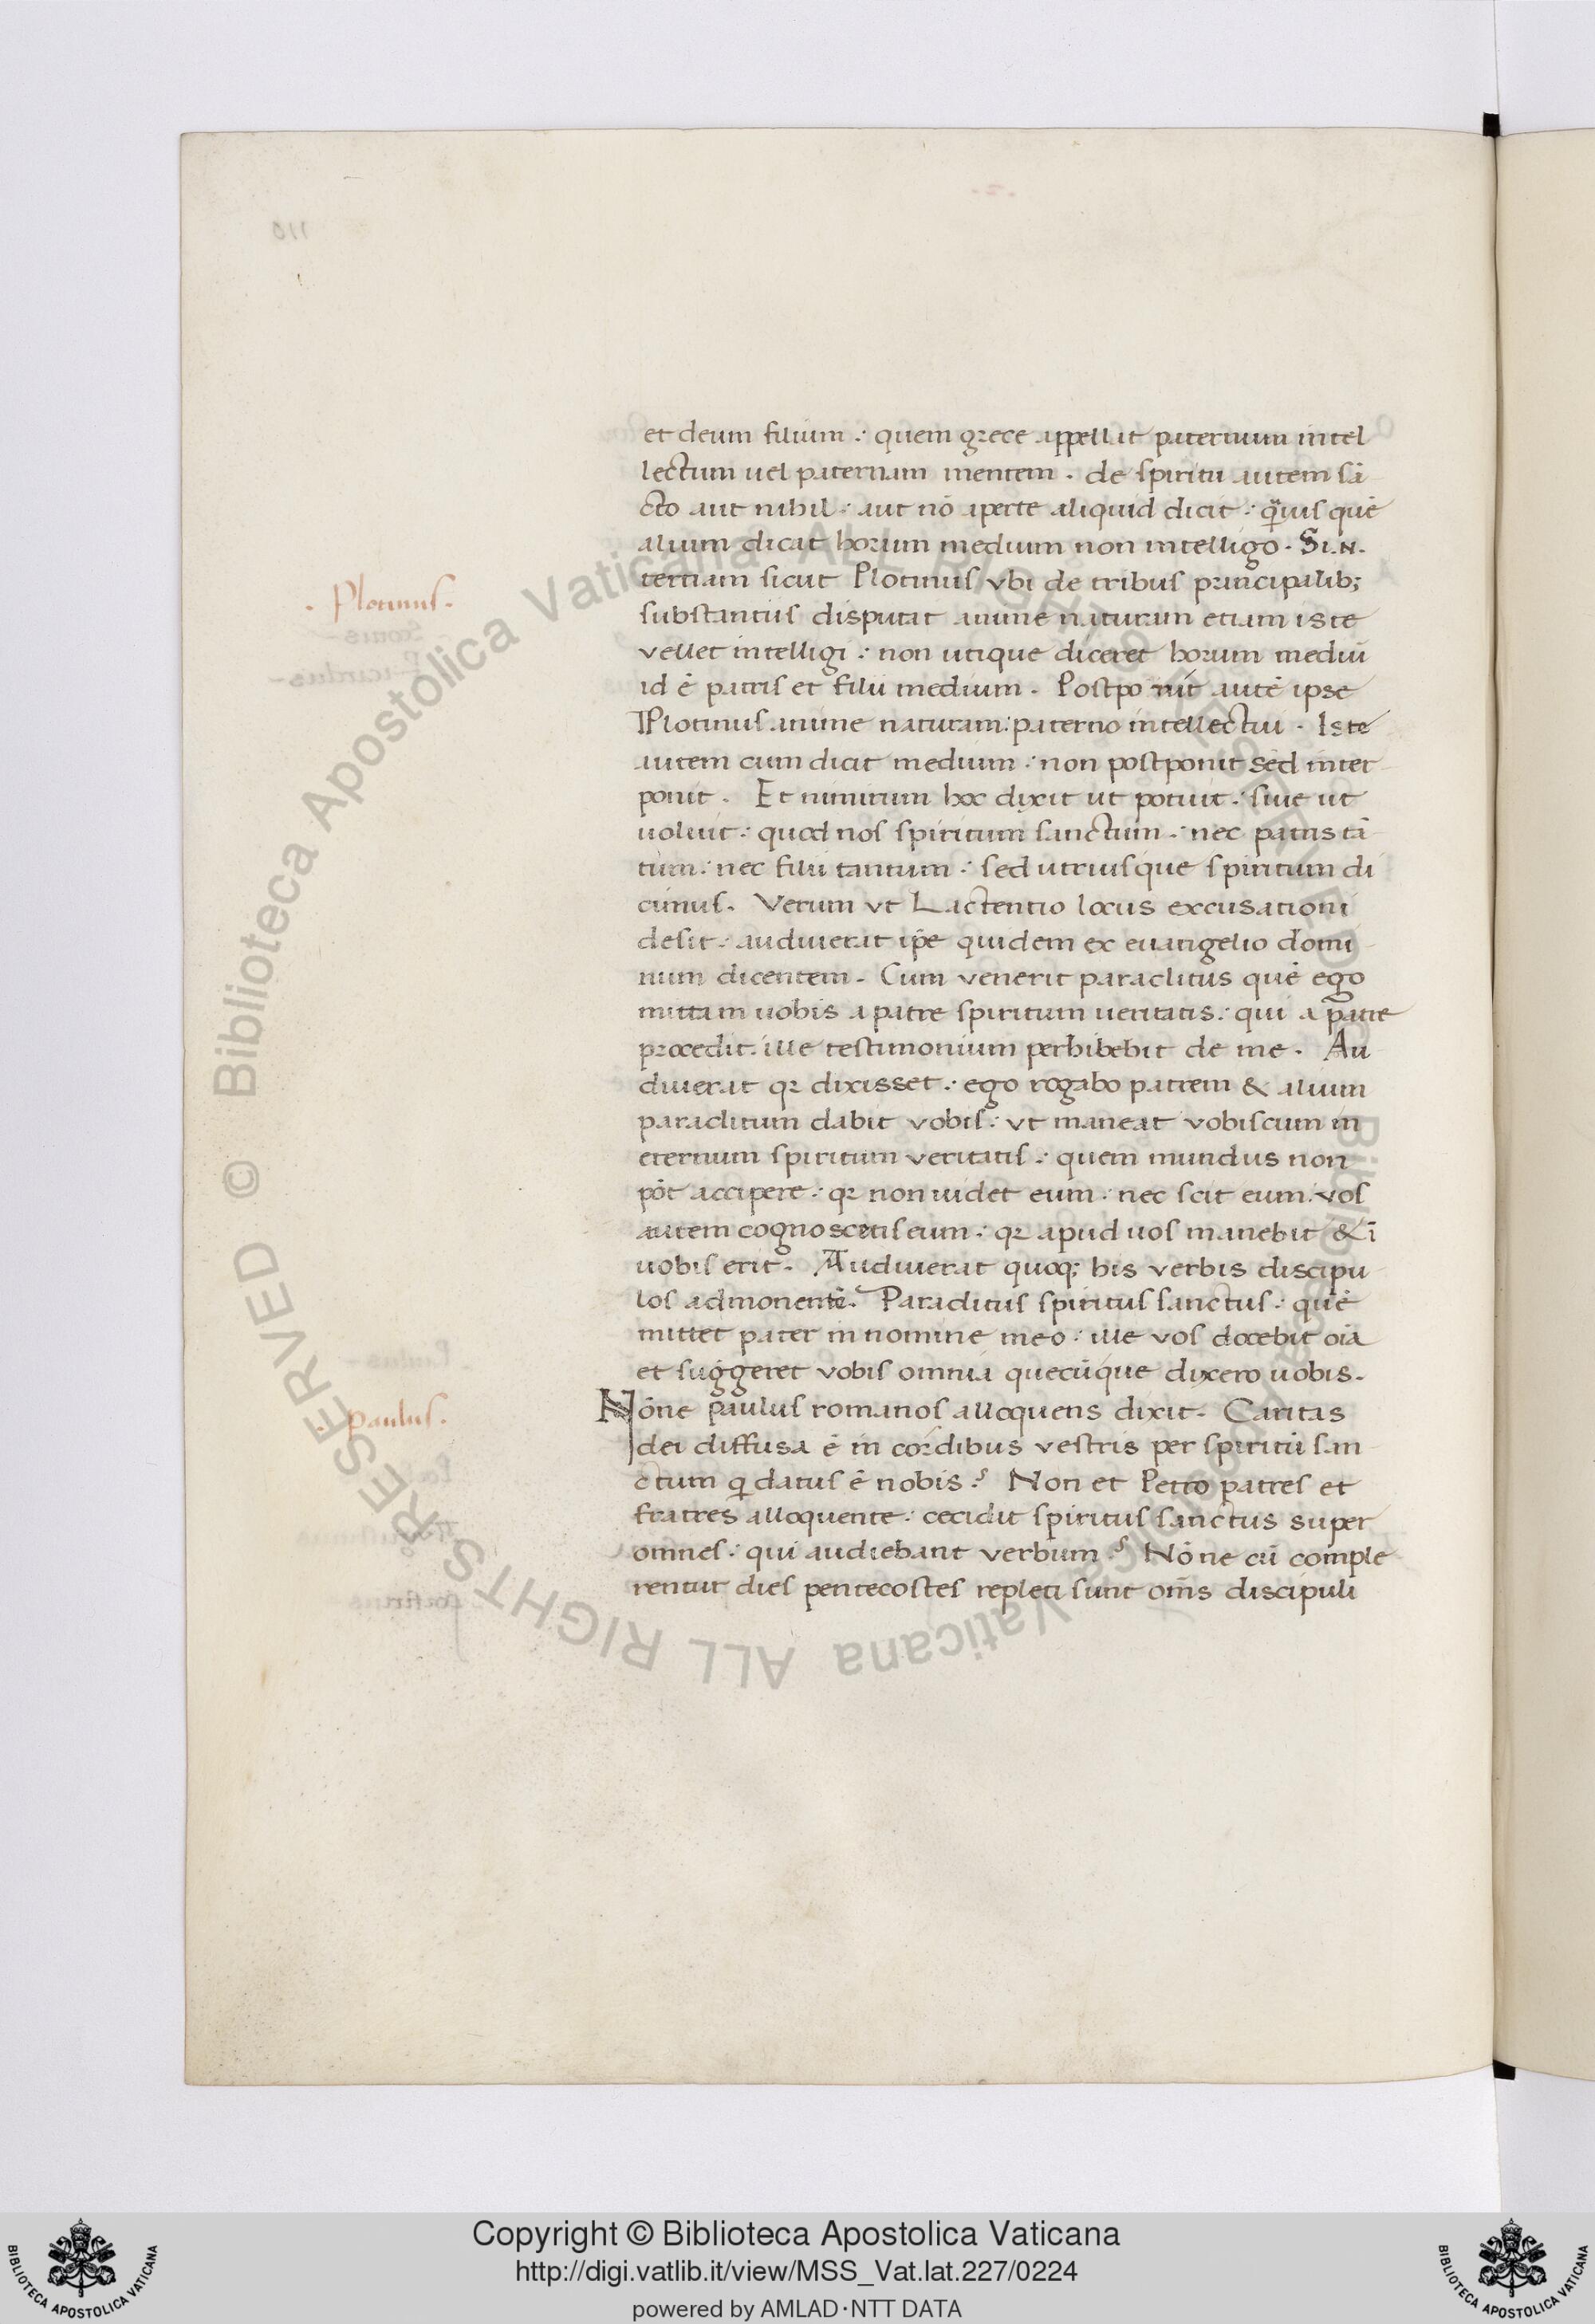 et deum filium : quem grece appellat paternum intel
lectum uel paternam mentem . de spiritu autem sā
cto aut nihil : aut nō aperte aliquid dicit : q̄uis quē
alium dicat horum medium non intelligo . Si.N.
tertiam sicut Plotinus vbi de tribus principalib;
substantiis disputat anime naturam etiam iste
vellet intelligi : non utique diceret horum mediū
id ē patris et filii medium . Postpo nit autē ipse
Plotinus anime naturam : paterno intellectui . Iste
autem cum dicit medium : non postponit sed inter
ponit . Et nimirum hoc dixit ut potuit : siue ut
uoluit : quod nos spiritum sanctum : nec patris tā
tum : nec filii tantum : sed utriusque spiritum di
cimus . Verum vt Lactentio locus excusationi
desit : audiuerat ip̄e quidem ex euangelio domi
num dicentem . Cum venerit paraclitus quē ego
mittam uobis a patre spiritum ueritatis : qui a patre
procedit . ille testimonium perhibebit de me . Au
diuerat qz dixisset : ego rogabo patrem & alium
paraclitum dabit vobis : vt maneat vobiscum in
eternum spiritum veritatis : quem mundus non
pōt accipere : qz non uidet eum : nec scit eum . vos
autem cognoscetis eum : qz apud uos manebit & ī
uobis erit . Audiuerat quoq; his verbis discipu
los admonentē . Paraclitus spiritus sanctus : quē
mittet pater in nomine meo : ille vos docebit oīa
et suggeret vobis omnia quecūque dixero uobis .
Nōne paulus romanos alloquens dixit . Caritas
dei diffusa ē in cordibus vestris per spiritū san
ctum q̄ datus ē nobis ? Non et Petro patres et
fratres alloquente : cecidit spiritus sanctus super
omnes : qui audiebant verbum ? Nōne cū comple
rentur dies pentecostes repleti sunt om̄s discipuli
. Plotinus .
. paulus .
© Biblioteca Apostolica Vaticana ALL RIGHTS RESERVED
Copyright © Biblioteca Apostolica Vaticana
http://digi.vatlib.it/view/MSS_Vat.lat.227/0224
powered by AMLAD·NTT DATA
BIBLIOTECA APOSTOLICA VATICANA
BIBLIOTECA APOSTOLICA VATICANA